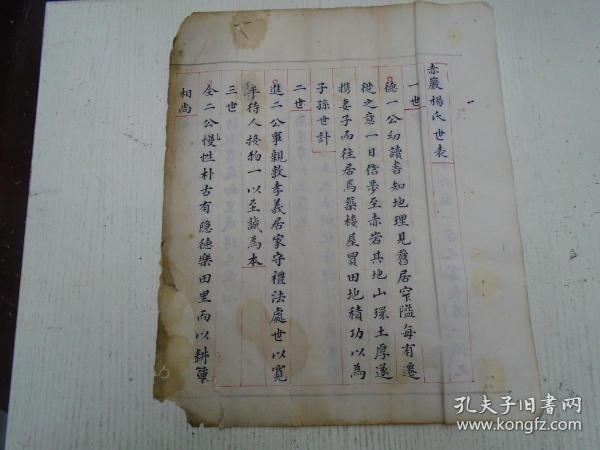 赤巖楊氏世表
一世
德一公幼讀書知地理見舊居窄隘每有遷
徙之意一日信步至赤岩其地山環土厚遂
携妻子而往居焉築樓屋買田地積功以為
子孫世計
二世
進二公事親敦孝義居家守禮法處世以寬
平待人接物一以至誠為本
三世
全二公慢性朴古有隱德樂田里而以耕
相尚
孔夫子旧书网
www.kongfz.com